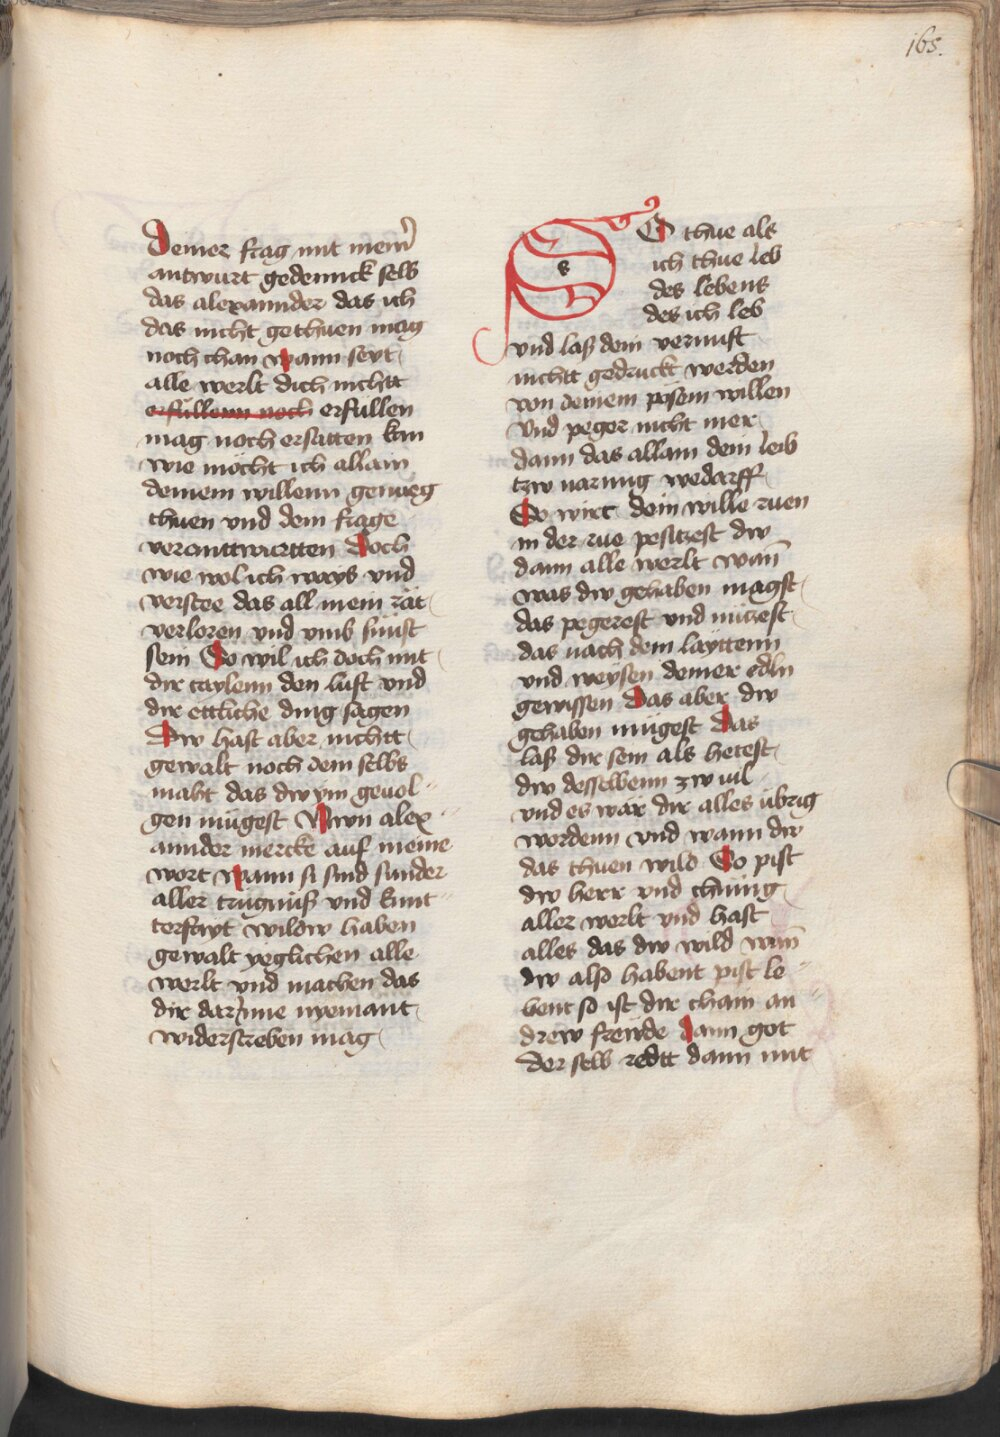 165.
Deiner frag mit meinr
antwurt gedennck selb
das alexannder das ich
das nicht gethuen mag
noch chan wann seyt
alle werlt dich nichtt
erfullenn noch erfullen
mag noch ersatten kan
wie möcht ich allain
deinem willenn genueg
thuen vnd dem frage
verantttwurtten Doch
wie wol ich ways vnd
verstee das all mein rät
verloren vnd vmb sunst
sein So wil ich doch mit
dir taylenn den lust vnd
dir ettliche ding sagen
Dw hast aber nichtt
gewalt noch dein selbs
maht das dw ym geuol
gen mügest Nwn alex
annder mercke auf meine
wort wann si sind sunder
aller trugnüß vnd kunt
terfayt wildw haben
gewalt yeglichen alle
werlt vnd machen das
dir darynne nyemant
widerstreben mag
S
s
O thue als
ich thue leb
des lebens
des ich leb
vnd laß dein vernuft
nichtt gedruckt werden
von deinem pösem willen
vnd peger nicht mer
dann das allain dein leib
tzw narung wedarff
So wirt dein wille ruen
in der rue pesitzest dw
dann alle werlt wann
was dw gehaben magst
das pegerest vnd nützest
das nach dem layttenn
vnd weysen deiner edln
gewissen Das aber dw
gehaben mügest Das
laß dir sein als hetest
dw desselbenn zw uil
vnd es wär dir alles übrig
wordenn vnd wann dw
das thuen wild So pist
dw herr vnd chünig
aller werlt vnd hast
alles das dw wild wann
dw also habent pist le
bent so ist dir chain an
drew frewde dann got
der selb redtt dann mit